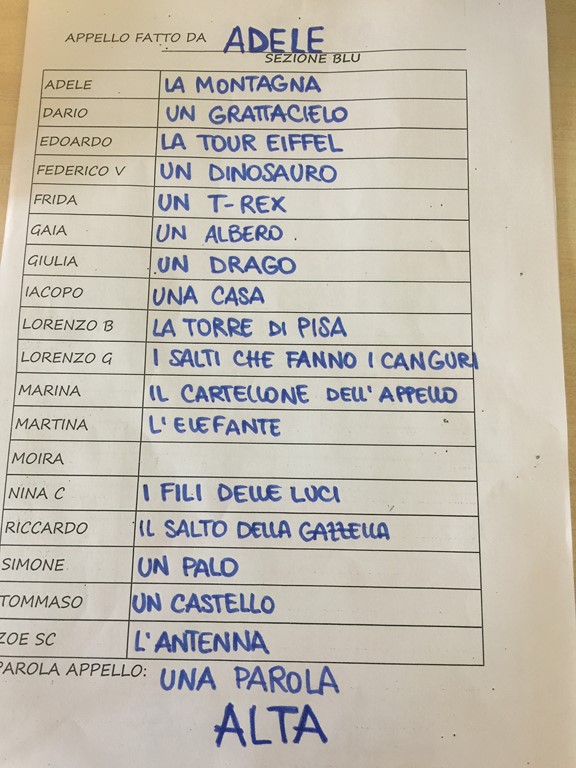 APPELLO FATTO DA ADELE
SEZIONE BLU
ADELE LA MONTAGNA
DARIO UN GRATTACIELO
EDOARDO LA TOUR EIFFEL
FEDERICO V UN DINOSAURO
FRIDA UN T-REX
GAIA UN ALBERO
GIULIA UN DRAGO
IACOPO UNA CASA
LORENZO B LA TORRE DI PISA
LORENZO G I SALTI CHE FANNO I CANGURI
MARINA IL CARTELLONE DELL'APPELLO
MARTINA L'ELEFANTE
MOIRA
NINA C I FILI DELLE LUCI
RICCARDO IL SALTO DELLA GAZZELLA
SIMONE UN PALO
TOMMASO UN CASTELLO
ZOE SC L'ANTENNA
PAROLA APPELLO: UNA PAROLA
ALTA